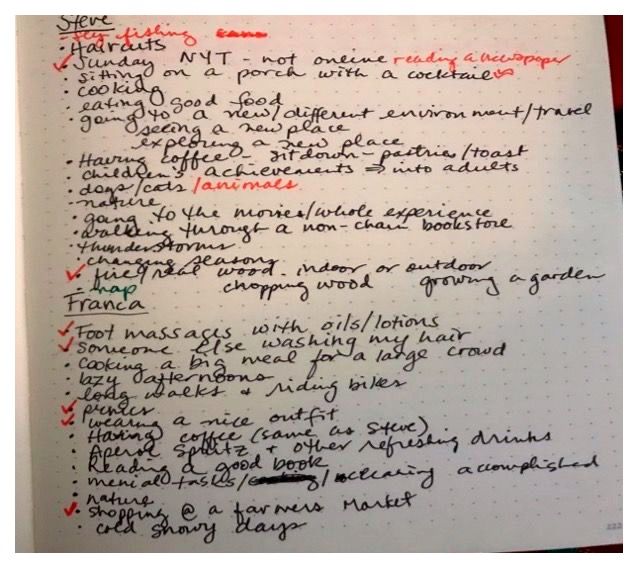 Steve
- fly fishing
· Haircuts
· Sunday NYT - not online reading a newspaper
· sitting on a porch with a cocktail
· cooking
· eating good food
· going to a new/different environment/travel
seeing a new place
exploring a new place
· Having coffee - sitdown - pastries/toast
· children's achievements ⇒ into adults
· dogs/cats/animals
· nature
· going to the movies/whole experience
· walking through a non-chain bookstore
· thunderstorms
· changing seasons
· fire/real wood - indoor or outdoor
· nap chopping wood growing a garden
Franca
· Foot massages with oils/lotions
· Someone else washing my hair
· cooking a big meal for a large crowd
· lazy afternoons
· long walks + riding bikes
· picnics
· wearing a nice outfit
· Having coffee (same as Steve)
· Aperol Spritz + other refreshing drinks
· Reading a good book
· menial tasks/ accomplished
· nature
· shopping @ a farmers market
· cold snowy days
222